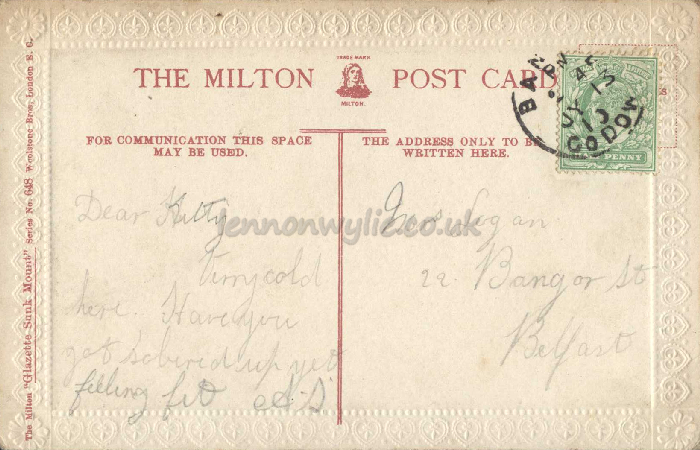 TRADE MARK
MILTON.
THE MILTON POST CARD
FOR COMMUNICATION THIS SPACE
MAY BE USED.
THE ADDRESS ONLY TO BE
WRITTEN HERE.
The Milton "Glazette Sunk Mount" Series No. 648 Woolstone Bros. London E. C.
Dear Kitty
Very cold
here, Have you
got sobered up yet
feeling fit A.S
Logan
22 Bangor St
Belfast
BAN
CO DOWN
PENNY
jennonwylie.co.uk